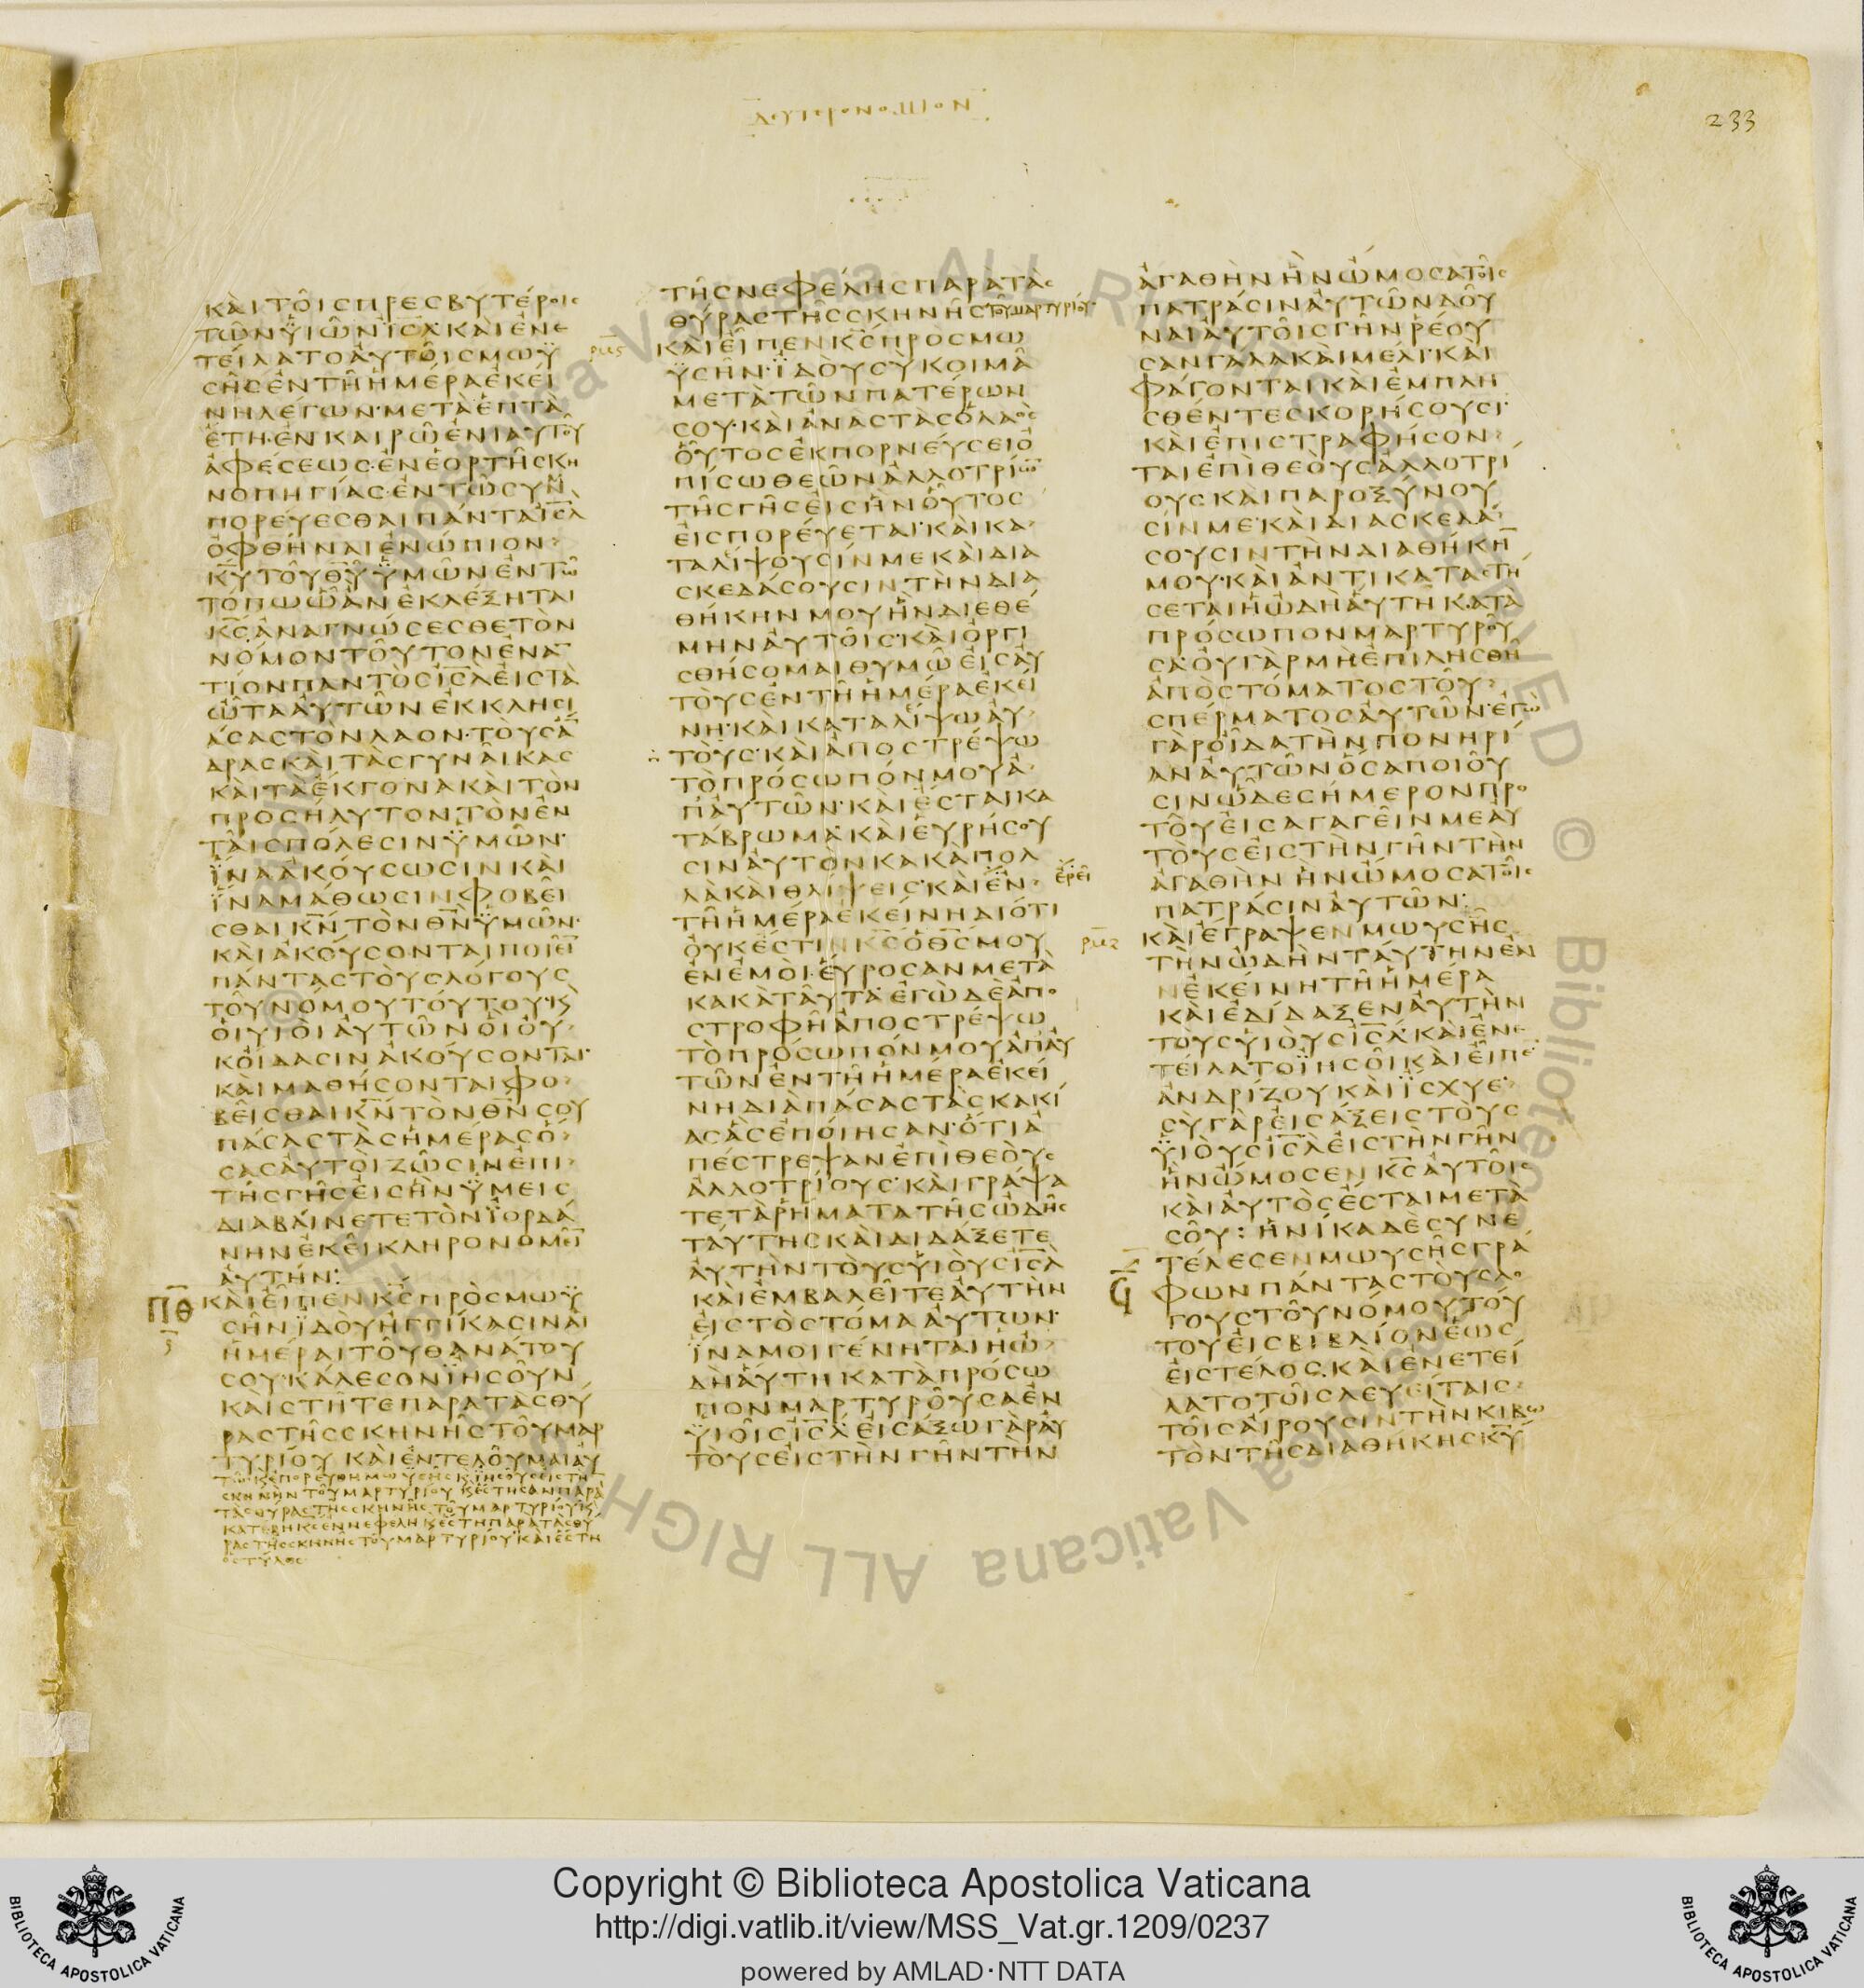 ΔΕΥΤΕΡΟΝΟΜΙΟΝ
233
ΚΑΙ ΤΟΙΣ ΠΡΕΣΒΥΤΕΡΟΙΣ
ΤΩΝ ΥΙΩΝ ΙΣΛ ΚΑΙ ΕΝΕ
ΤΕΙΛΑΤΟ ΑΥΤΟΙΣ ΜΩΥ
ΣΗΣ ΕΝ ΤΗ ΗΜΕΡΑ ΕΚΕΙ
ΝΗ ΛΕΓΩΝ· ΜΕΤΑ ΕΠΤΑ
ΕΤΗ· ΕΝ ΚΑΙΡΩ ΕΝΙΑΥΤΟΥ
ΑΦΕΣΕΩΣ· ΕΝ ΕΟΡΤΗ ΣΚΗ
ΝΟΠΗΓΙΑΣ· ΕΝ ΤΩ ΣΥΝ
ΠΟΡΕΥΕΣΘΑΙ ΠΑΝΤΑ ΙΣΛ
ΟΦΘΗΝΑΙ ΕΝΩΠΙΟΝ
ΚΥ ΤΟΥ ΘΥ ΥΜΩΝ ΕΝ ΤΩ
ΤΟΠΩ Ω ΑΝ ΕΚΛΕΞΗΤΑΙ
ΚΣ ΑΝΑΓΝΩΣΕΣΘΕ ΤΟΝ
ΝΟΜΟΝ ΤΟΥΤΟΝ ΕΝΑΝ
ΤΙΟΝ ΠΑΝΤΟΣ ΙΣΛ ΕΙΣ ΤΑ
ΩΤΑ ΑΥΤΩΝ ΕΚΚΛΗΣΙ
ΑΣΑΣ ΤΟΝ ΛΑΟΝ· ΤΟΥΣ ΑΝ
ΔΡΑΣ ΚΑΙ ΤΑΣ ΓΥΝΑΙΚΑΣ
ΚΑΙ ΤΑ ΕΚΓΟΝΑ ΚΑΙ ΤΟΝ
ΠΡΟΣΗΛΥΤΟΝ ΤΟΝ ΕΝ
ΤΑΙΣ ΠΟΛΕΣΙΝ ΥΜΩΝ·
ΙΝΑ ΑΚΟΥΣΩΣΙΝ ΚΑΙ
ΙΝΑ ΜΑΘΩΣΙΝ ΦΟΒΕΙ
ΣΘΑΙ ΚΝ ΤΟΝ ΘΝ ΥΜΩΝ·
ΚΑΙ ΑΚΟΥΣΟΝΤΑΙ ΠΟΙΕΙΝ
ΠΑΝΤΑΣ ΤΟΥΣ ΛΟΓΟΥΣ
ΤΟΥ ΝΟΜΟΥ ΤΟΥΤΟΥ· ΚΑΙ
ΟΙ ΥΙΟΙ ΑΥΤΩΝ ΟΙ ΟΥ
Κ ΟΙΔΑΣΙΝ ΑΚΟΥΣΟΝΤΑΙ·
ΚΑΙ ΜΑΘΗΣΟΝΤΑΙ ΦΟ
ΒΕΙΣΘΑΙ ΚΝ ΤΟΝ ΘΝ ΣΟΥ
ΠΑΣΑΣ ΤΑΣ ΗΜΕΡΑΣ Ο
ΣΑΣ ΑΥΤΟΙ ΖΩΣΙΝ ΕΠΙ
ΤΗΣ ΓΗΣ ΕΙΣ ΗΝ ΥΜΕΙΣ
ΔΙΑΒΑΙΝΕΤΕ ΤΟΝ ΙΟΡΔΑ
ΝΗΝ ΕΚΕΙ ΚΛΗΡΟΝΟΜΕΙΝ
ΑΥΤΗΝ:
ΠΘ ΚΑΙ ΕΙΠΕΝ ΚΣ ΠΡΟΣ ΜΩΥ
ΣΗΝ ΙΔΟΥ ΗΓΓΙΚΑΣΙΝ ΑΙ
ΗΜΕΡΑΙ ΤΟΥ ΘΑΝΑΤΟΥ
ΣΟΥ· ΚΑΛΕΣΟΝ ΙΗΣΟΥΝ
ΚΑΙ ΣΤΗΤΕ ΠΑΡΑ ΤΑΣ ΘΥ
ΡΑΣ ΤΗΣ ΣΚΗΝΗΣ ΤΟΥ ΜΑΡ
ΤΥΡΙΟΥ ΚΑΙ ΕΝΤΕΛΟΥΜΑΙ ΑΥ
ΤΩ· ΚΑΙ ΕΠΟΡΕΥΘΗ ΜΩΥΣΗΣ ΚΑΙ ΙΗΣΟΥΣ ΕΙΣ ΤΗΝ
ΣΚΗΝΗΝ ΤΟΥ ΜΑΡΤΥΡΙΟΥ ΚΑΙ ΕΣΤΗΣΑΝ ΠΑΡΑ
ΤΑΣ ΘΥΡΑΣ ΤΗΣ ΣΚΗΝΗΣ ΤΟΥ ΜΑΡΤΥΡΙΟΥ ΚΑΙ
ΚΑΤΕΒΗ ΚΣ ΕΝ ΝΕΦΕΛΗ ΚΑΙ ΕΣΤΗ ΠΑΡΑ ΤΑΣ ΘΥ
ΡΑΣ ΤΗΣ ΣΚΗΝΗΣ ΤΟΥ ΜΑΡΤΥΡΙΟΥ· ΚΑΙ ΕΣΤΗ
Ο ΣΤΥΛΟΣ
ΤΗΣ ΝΕΦΕΛΗΣ ΠΑΡΑ ΤΑΣ
ΘΥΡΑΣ ΤΗΣ ΣΚΗΝΗΣ ΤΟΥ ΜΑΡΤΥΡΙΟΥ
ΚΑΙ ΕΙΠΕΝ ΚΣ ΠΡΟΣ ΜΩ
ΥΣΗΝ· ΙΔΟΥ ΣΥ ΚΟΙΜΑ
ΜΕΤΑ ΤΩΝ ΠΑΤΕΡΩΝ
ΣΟΥ· ΚΑΙ ΑΝΑΣΤΑΣ Ο ΛΑΟΣ
ΟΥΤΟΣ ΕΚΠΟΡΝΕΥΣΕΙ Ο
ΠΙΣΩ ΘΕΩΝ ΑΛΛΟΤΡΙΩΝ
ΤΗΣ ΓΗΣ ΕΙΣ ΗΝ ΟΥΤΟΣ
ΕΙΣΠΟΡΕΥΕΤΑΙ· ΚΑΙ ΚΑ
ΤΑΛΕΙΨΟΥΣΙΝ ΜΕ ΚΑΙ ΔΙΑ
ΣΚΕΔΑΣΟΥΣΙΝ ΤΗΝ ΔΙΑ
ΘΗΚΗΝ ΜΟΥ ΗΝ ΔΙΕΘΕ
ΜΗΝ ΑΥΤΟΙΣ· ΚΑΙ ΟΡΓΙ
ΣΘΗΣΟΜΑΙ ΘΥΜΩ ΕΙΣ ΑΥ
ΤΟΥΣ ΕΝ ΤΗ ΗΜΕΡΑ ΕΚΕΙ
ΝΗ· ΚΑΙ ΚΑΤΑΛΕΙΨΩ ΑΥ
ΤΟΥΣ ΚΑΙ ΑΠΟΣΤΡΕΨΩ
ΤΟ ΠΡΟΣΩΠΟΝ ΜΟΥ Α
Π ΑΥΤΩΝ· ΚΑΙ ΕΣΤΑΙ ΚΑ
ΤΑΒΡΩΜΑ· ΚΑΙ ΕΥΡΗΣΟΥ
ΣΙΝ ΑΥΤΟΝ ΚΑΚΑ ΠΟΛ
ΛΑ ΚΑΙ ΘΛΙΨΕΙΣ· ΚΑΙ ΕΝ ΕΡΕΙ
ΤΗ ΗΜΕΡΑ ΕΚΕΙΝΗ ΔΙΟΤΙ
ΟΥΚ ΕΣΤΙΝ ΚΣ Ο ΘΣ ΜΟΥ
ΕΝ ΕΜΟΙ· ΕΥΡΟΣΑΝ ΜΕ ΤΑ
ΚΑΚΑ ΤΑΥΤΑ· ΕΓΩ ΔΕ ΑΠΟ
ΣΤΡΟΦΗ ΑΠΟΣΤΡΕΨΩ
ΤΟ ΠΡΟΣΩΠΟΝ ΜΟΥ ΑΠ ΑΥ
ΤΩΝ ΕΝ ΤΗ ΗΜΕΡΑ ΕΚΕΙ
ΝΗ ΔΙΑ ΠΑΣΑΣ ΤΑΣ ΚΑΚΙ
ΑΣ ΑΣ ΕΠΟΙΗΣΑΝ· ΟΤΙ Α
ΠΕΣΤΡΕΨΑΝ ΕΠΙ ΘΕΟΥΣ
ΑΛΛΟΤΡΙΟΥΣ· ΚΑΙ ΓΡΑΨΑ
ΤΕ ΤΑ ΡΗΜΑΤΑ ΤΗΣ ΩΔΗΣ
ΤΑΥΤΗΣ ΚΑΙ ΔΙΔΑΞΕΤΕ
ΑΥΤΗΝ ΤΟΥΣ ΥΙΟΥΣ ΙΣΛ
ΚΑΙ ΕΜΒΑΛΕΙΤΕ ΑΥΤΗΝ
ΕΙΣ ΤΟ ΣΤΟΜΑ ΑΥΤΩΝ·
ΙΝΑ ΜΟΙ ΓΕΝΗΤΑΙ Η Ω
ΔΗ ΑΥΤΗ ΚΑΤΑ ΠΡΟΣΩ
ΠΟΝ ΜΑΡΤΥΡΟΥΣΑ ΕΝ
ΥΙΟΙΣ ΙΣΛ· ΕΙΣΑΞΩ ΓΑΡ ΑΥ
ΤΟΥΣ ΕΙΣ ΤΗΝ ΓΗΝ ΤΗΝ
ΑΓΑΘΗΝ ΗΝ ΩΜΟΣΑ ΤΟΙΣ
ΠΑΤΡΑΣΙΝ ΑΥΤΩΝ ΔΟΥ
ΝΑΙ ΑΥΤΟΙΣ ΓΗΝ ΡΕΟΥ
ΣΑΝ ΓΑΛΑ ΚΑΙ ΜΕΛΙ· ΚΑΙ
ΦΑΓΟΝΤΑΙ ΚΑΙ ΕΜΠΛΗ
ΣΘΕΝΤΕΣ ΚΟΡΗΣΟΥΣΙ·
ΚΑΙ ΕΠΙΣΤΡΑΦΗΣΟΝ
ΤΑΙ ΕΠΙ ΘΕΟΥΣ ΑΛΛΟΤΡΙ
ΟΥΣ ΚΑΙ ΠΑΡΟΞΥΝΟΥ
ΣΙΝ ΜΕ· ΚΑΙ ΔΙΑΣΚΕΔΑ
ΣΟΥΣΙΝ ΤΗΝ ΔΙΑΘΗΚΗΝ
ΜΟΥ· ΚΑΙ ΑΝΤΙΚΑΤΑΣΤΗ
ΣΕΤΑΙ Η ΩΔΗ ΑΥΤΗ ΚΑΤΑ
ΠΡΟΣΩΠΟΝ ΜΑΡΤΥΡΟΥ
ΣΑ· ΟΥ ΓΑΡ ΜΗ ΕΠΙΛΗΣΘΗ
ΑΠΟ ΣΤΟΜΑΤΟΣ ΤΟΥ
ΣΠΕΡΜΑΤΟΣ ΑΥΤΩΝ· ΕΓΩ
ΓΑΡ ΟΙΔΑ ΤΗΝ ΠΟΝΗΡΙ
ΑΝ ΑΥΤΩΝ ΟΣΑ ΠΟΙΟΥ
ΣΙΝ ΩΔΕ ΣΗΜΕΡΟΝ ΠΡΟ
ΤΟΥ ΕΙΣΑΓΑΓΕΙΝ ΜΕ ΑΥ
ΤΟΥΣ ΕΙΣ ΤΗΝ ΓΗΝ ΤΗΝ
ΑΓΑΘΗΝ ΗΝ ΩΜΟΣΑ ΤΟΙΣ
ΠΑΤΡΑΣΙΝ ΑΥΤΩΝ:
ΚΑΙ ΕΓΡΑΨΕΝ ΜΩΥΣΗΣ
ΤΗΝ ΩΔΗΝ ΤΑΥΤΗΝ ΕΝ
ΝΕΚΕΙΝΗ ΤΗ ΗΜΕΡΑ
ΚΑΙ ΕΔΙΔΑΞΕΝ ΑΥΤΗΝ
ΤΟΥΣ ΥΙΟΥΣ ΙΣΛ· ΚΑΙ ΕΝΕ
ΤΕΙΛΑΤΟ ΙΗΣΟΙ ΚΑΙ ΕΙΠΕΝ
ΑΝΔΡΙΖΟΥ ΚΑΙ ΙΣΧΥΕ·
ΣΥ ΓΑΡ ΕΙΣΑΞΕΙΣ ΤΟΥΣ
ΥΙΟΥΣ ΙΣΛ ΕΙΣ ΤΗΝ ΓΗΝ
ΗΝ ΩΜΟΣΕΝ ΚΣ ΑΥΤΟΙΣ
ΚΑΙ ΑΥΤΟΣ ΕΣΤΑΙ ΜΕΤΑ
ΣΟΥ: ΗΝΙΚΑ ΔΕ ΣΥΝΕ
ΤΕΛΕΣΕΝ ΜΩΥΣΗΣ ΓΡΑ
ΦΩΝ ΠΑΝΤΑΣ ΤΟΥΣ ΛΟ
ΓΟΥΣ ΤΟΥ ΝΟΜΟΥ ΤΟΥ
ΤΟΥ ΕΙΣ ΒΙΒΛΙΟΝ ΕΩΣ
ΕΙΣ ΤΕΛΟΣ· ΚΑΙ ΕΝΕΤΕΙ
ΛΑΤΟ ΤΟΙΣ ΛΕΥΕΙΤΑΙΣ
ΤΟΙΣ ΑΙΡΟΥΣΙΝ ΤΗΝ ΚΙΒΩ
ΤΟΝ ΤΗΣ ΔΙΑΘΗΚΗΣ ΚΥ
Copyright © Biblioteca Apostolica Vaticana
http://digi.vatlib.it/view/MSS_Vat.gr.1209/0237
powered by AMLAD·NTT DATA
BIBLIOTECA APOSTOLICA VATICANA
BIBLIOTECA APOSTOLICA VATICANA